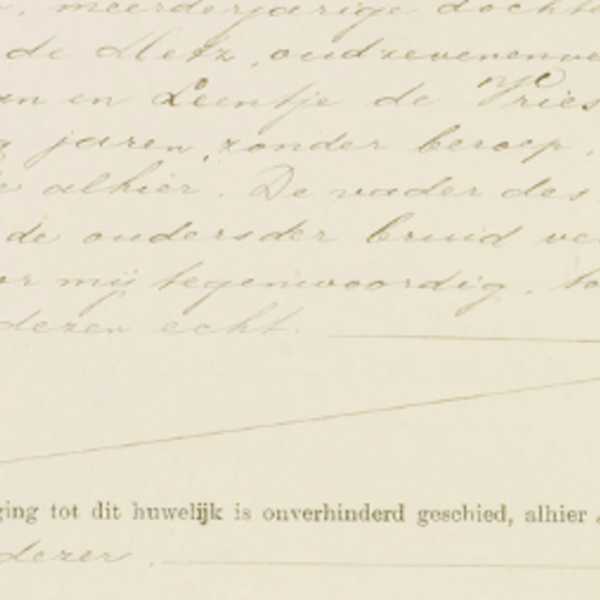 , meerderjarige docht
de Metz, oud zevenenve
an en Leentje de Vries
jaren, zonder beroep,
e alhier. De vader des
de ouders der bruid ve
or mij tegenwoordig, to
dezen echt.
ging tot dit huwelijk is onverhinderd geschied, alhier
dezer.